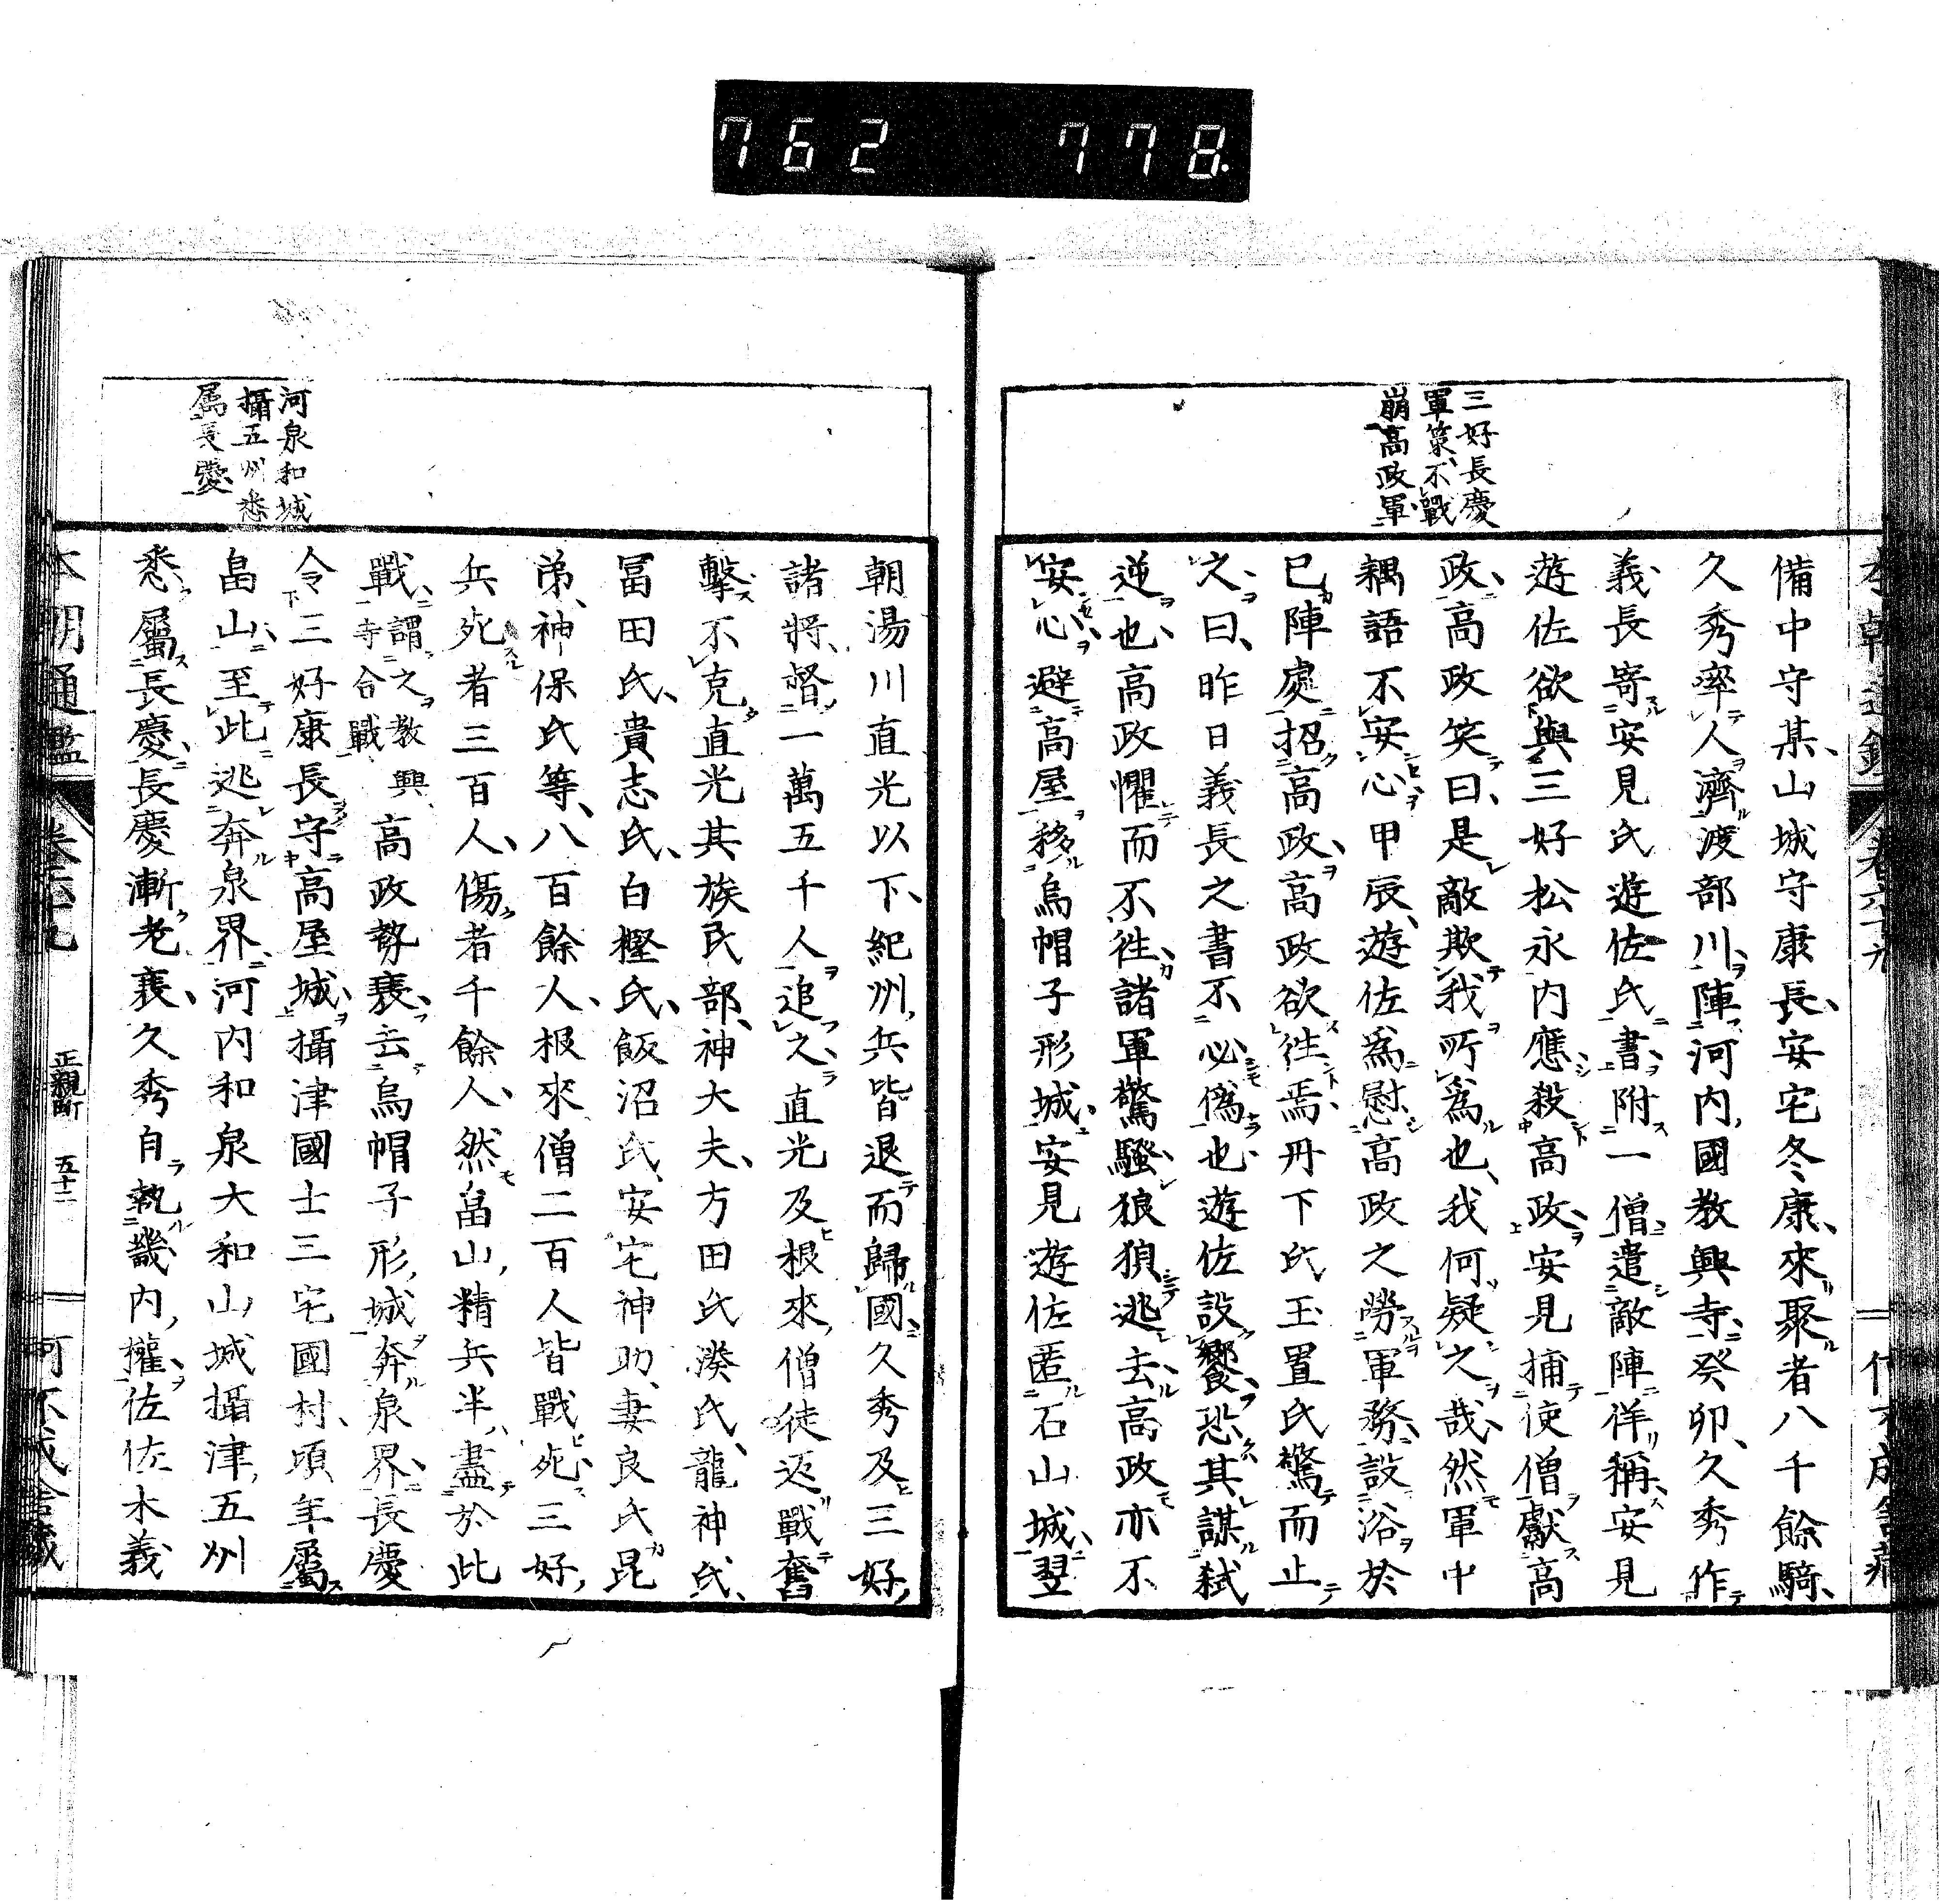 762 778.
三好長慶
軍策不戰
崩高政軍
備中守某山城守康長安宅冬康來聚者八千餘騎
久秀率人濟渡部川陣河内國教興寺癸卯久秀作
義長寄安見氏遊佐氏書附一僧遣敵陣徉稱安見
遊佐欲與三好松永内應殺高政安見捕使僧獻高
政高政笑曰是敵欺我所爲也我何疑之哉然軍中
耦語不安心甲辰遊佐爲慰高政之勞軍務設浴於
已陣處招高政高政欲徃焉丹下氏玉置氏驚而止
之曰昨日義長之書不必僞也遊佐設饗恐其謀弑
逆也高政懼而不徃諸軍驚騷狼狽逃去高政亦不
安心避高屋移烏帽子形城安見遊佐匿石山城翌
朝湯川直光以下紀州兵皆退而歸國久秀及三好
諸將督一萬五千人追之直光及根來僧徒返戰奮
擊不克直光其族民部神大夫方田氏湊氏龍神氏
冨田氏貴志氏白樫氏飯沼氏安宅神助妻良氏昆
弟神保氏等八百餘人根來僧二百人皆戰死三好
兵死者三百人傷者千餘人然畠山精兵半盡於此
戰謂之教興寺合戰高政勢衰去烏帽子形城奔泉界長慶
令三好康長守高屋城攝津國士三宅國村頃年屬
畠山至此逃奔泉界河内和泉大和山城攝津五州
悉屬長慶長慶漸老衰久秀自執畿内權佐佐木義
河泉和城
攝五州悉
属長慶
本朝通鑑 卷六十九 正親町 五十二